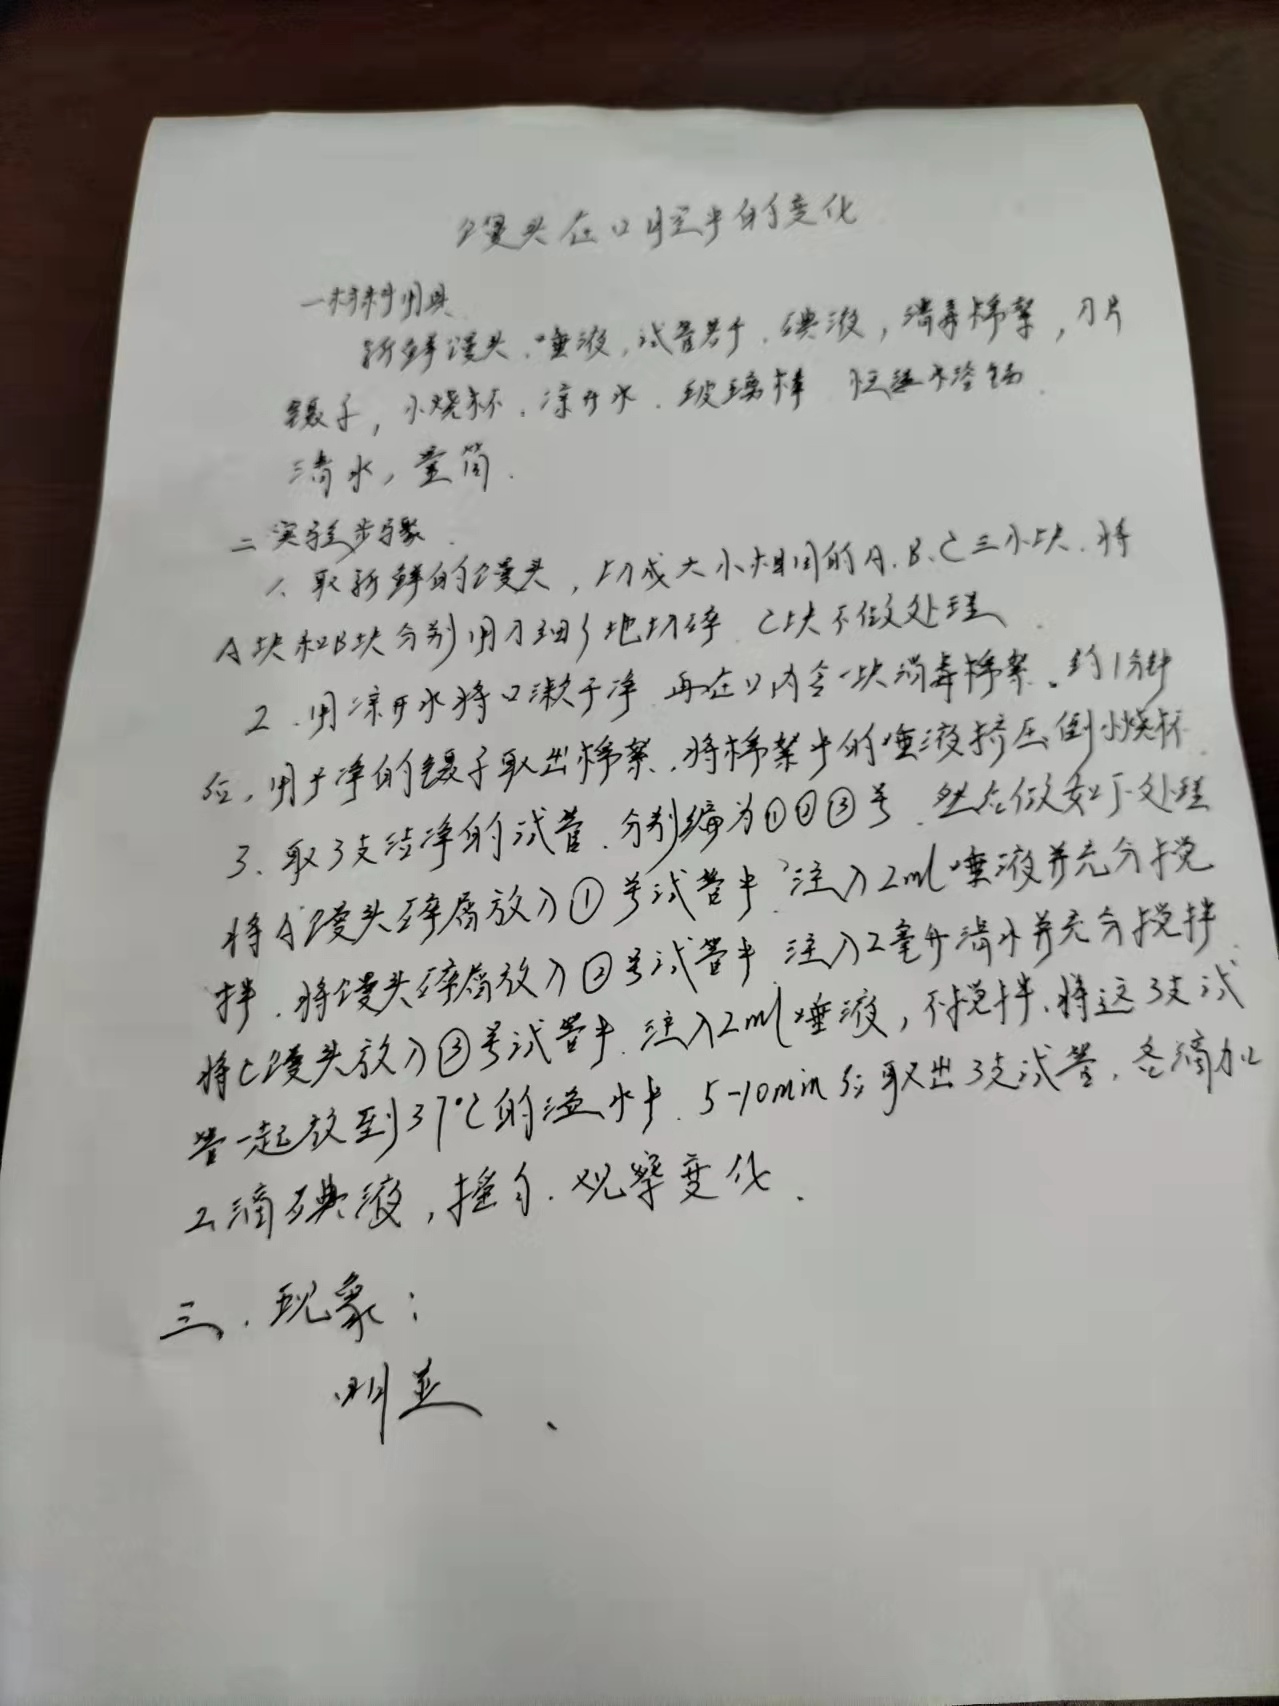 馒头在口腔中的变化
一材料用具
新鲜馒头、唾液，试管若干、碘液，消毒棉絮，刀片
镊子，小烧杯、凉开水、玻璃棒 恒温水浴锅、
清水，量筒.
二实验步骤.
1、取新鲜的馒头，切成大小相同的A、B、C三小块、将
A块和B块分别用刀细细地切碎 C块不做处理
2.用凉开水将口漱干净 再在口内含一块消毒棉絮。约1分钟
后，用干净的镊子取出棉絮、将棉絮中的唾液挤压倒小烧杯
3、取3支洁净的试管、分别编为①②③号、然后做如下处理
将A馒头碎屑放入①号试管中，注入2ml唾液并充分搅
拌、将馒头碎屑放入②号试管中 注入2毫升清水并充分搅拌、
将C馒头放入③号试管中、注入2ml唾液，不搅拌、将这3支试
管一起放到37℃的温水中、5-10min后取出3支试管、各滴加
2滴碘液，摇匀、观察变化.
三、现象:
明显、